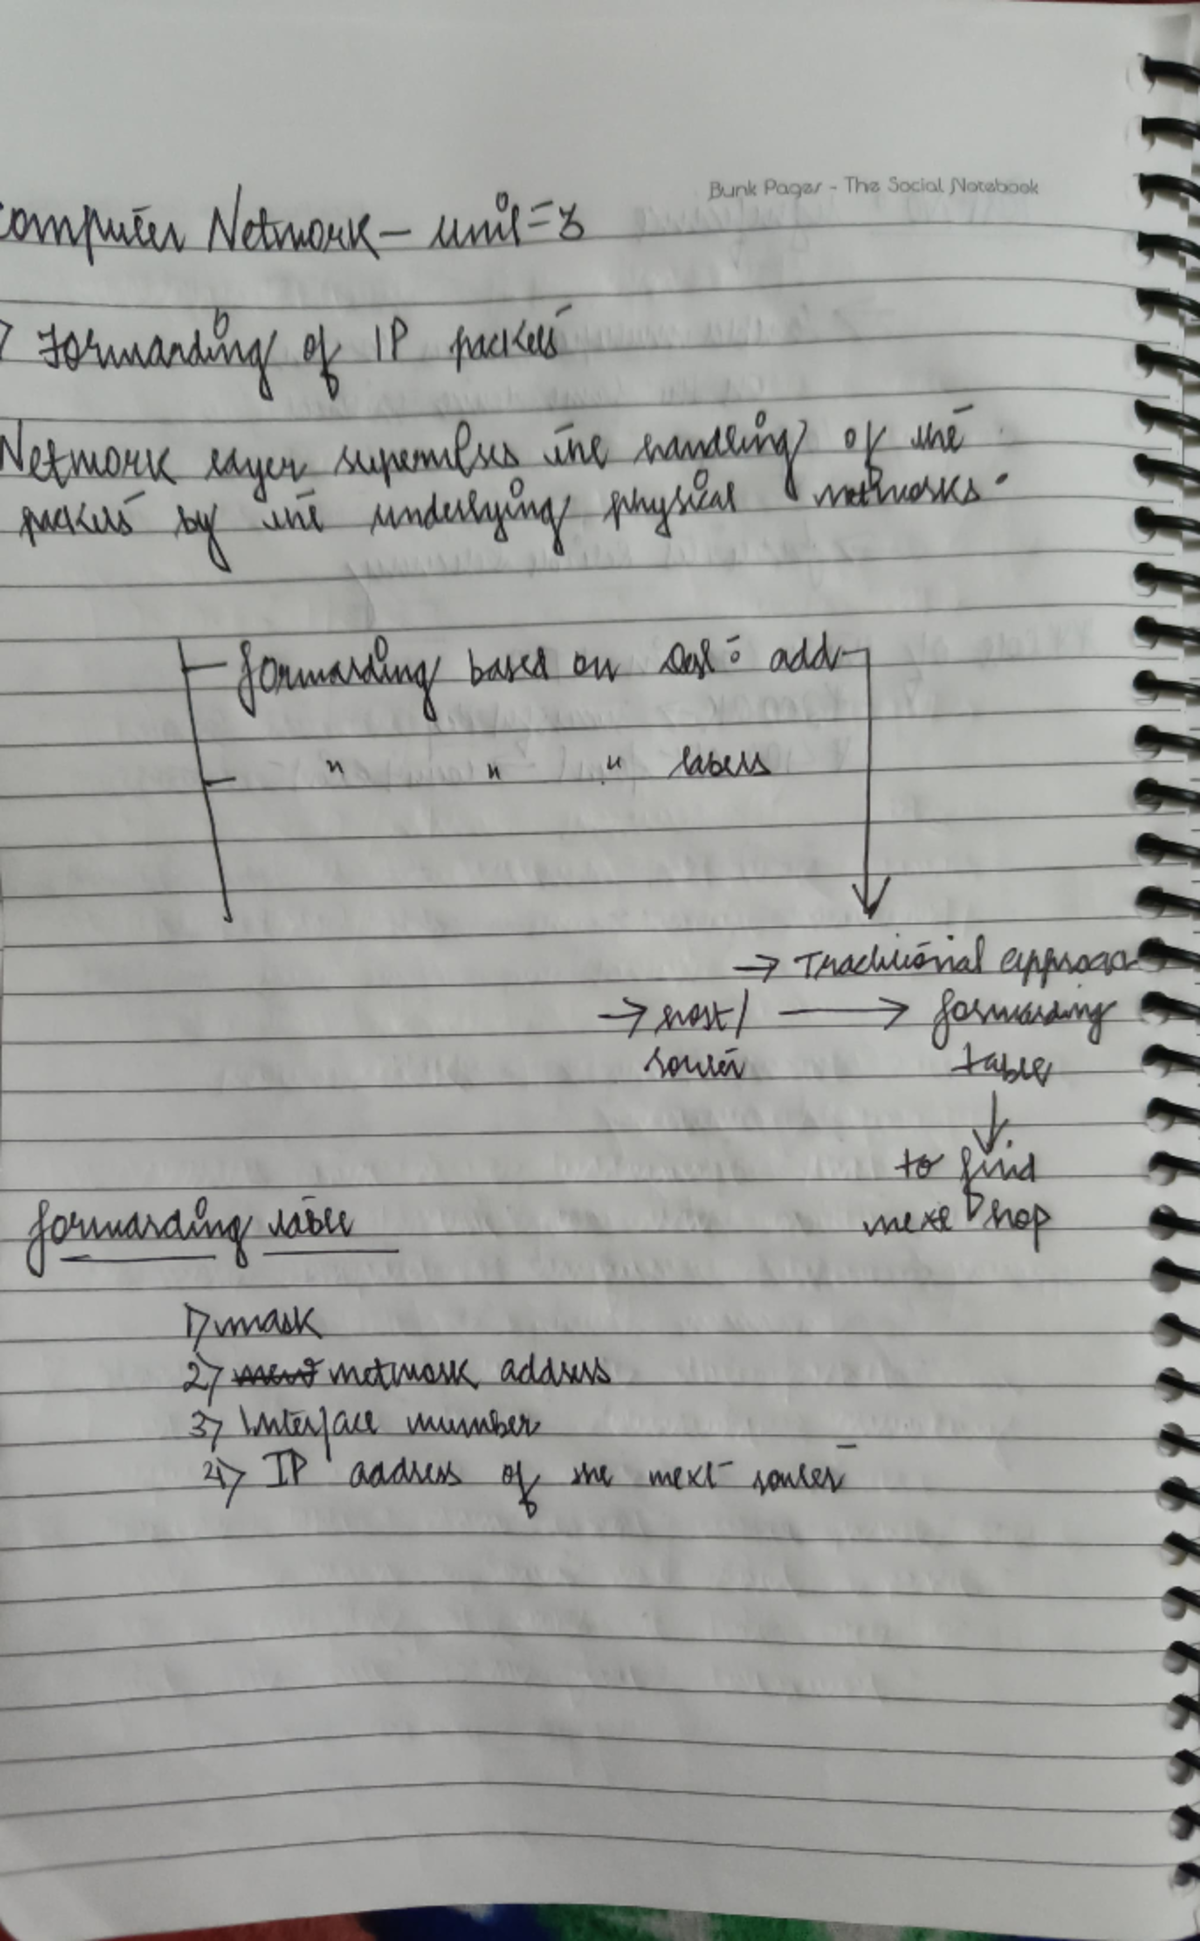 Bunk Pages - The Social Notebook
Computer Network - unit = 3
Forwarding of IP packets
Network layer supervises the handling of the
packets by the underlying physical networks.
forwarding based on Dest: add
" " " labels
→ Traditional approac
→ host/ → forwarding
router table
to find
next hop
forwarding table
1) mask
2) network address
3) Interface number
4) IP address of the next router